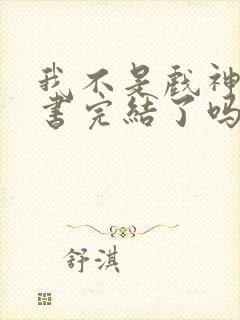 我不是戲神
書完結了嗎
舒淇